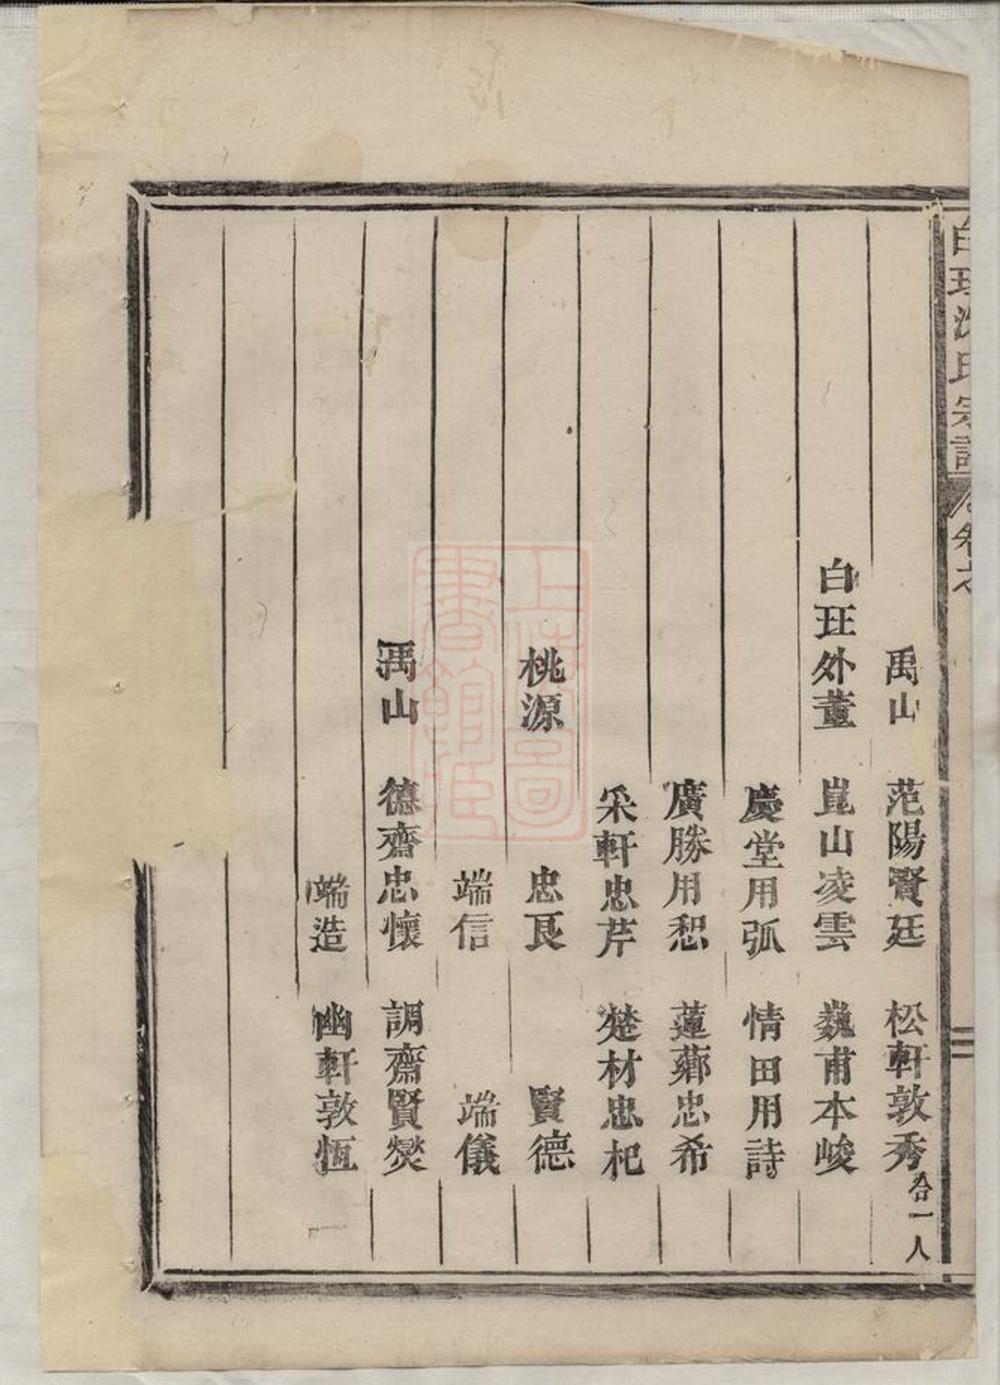 白玨沈氏宗譜 卷之
禹山 范陽賢廷 松軒敦秀 合一人
白玨外董 崑山凌雲 巍甫本峻
慶堂用弧 情田用詩
廣勝用恕 蓮薌忠希
采軒忠芹 楚材忠杞
桃源 忠良 賢德
端信 端儀
禹山 德齋忠懷 調齋賢爕
端造 幽軒敦恆
上海圖書館藏